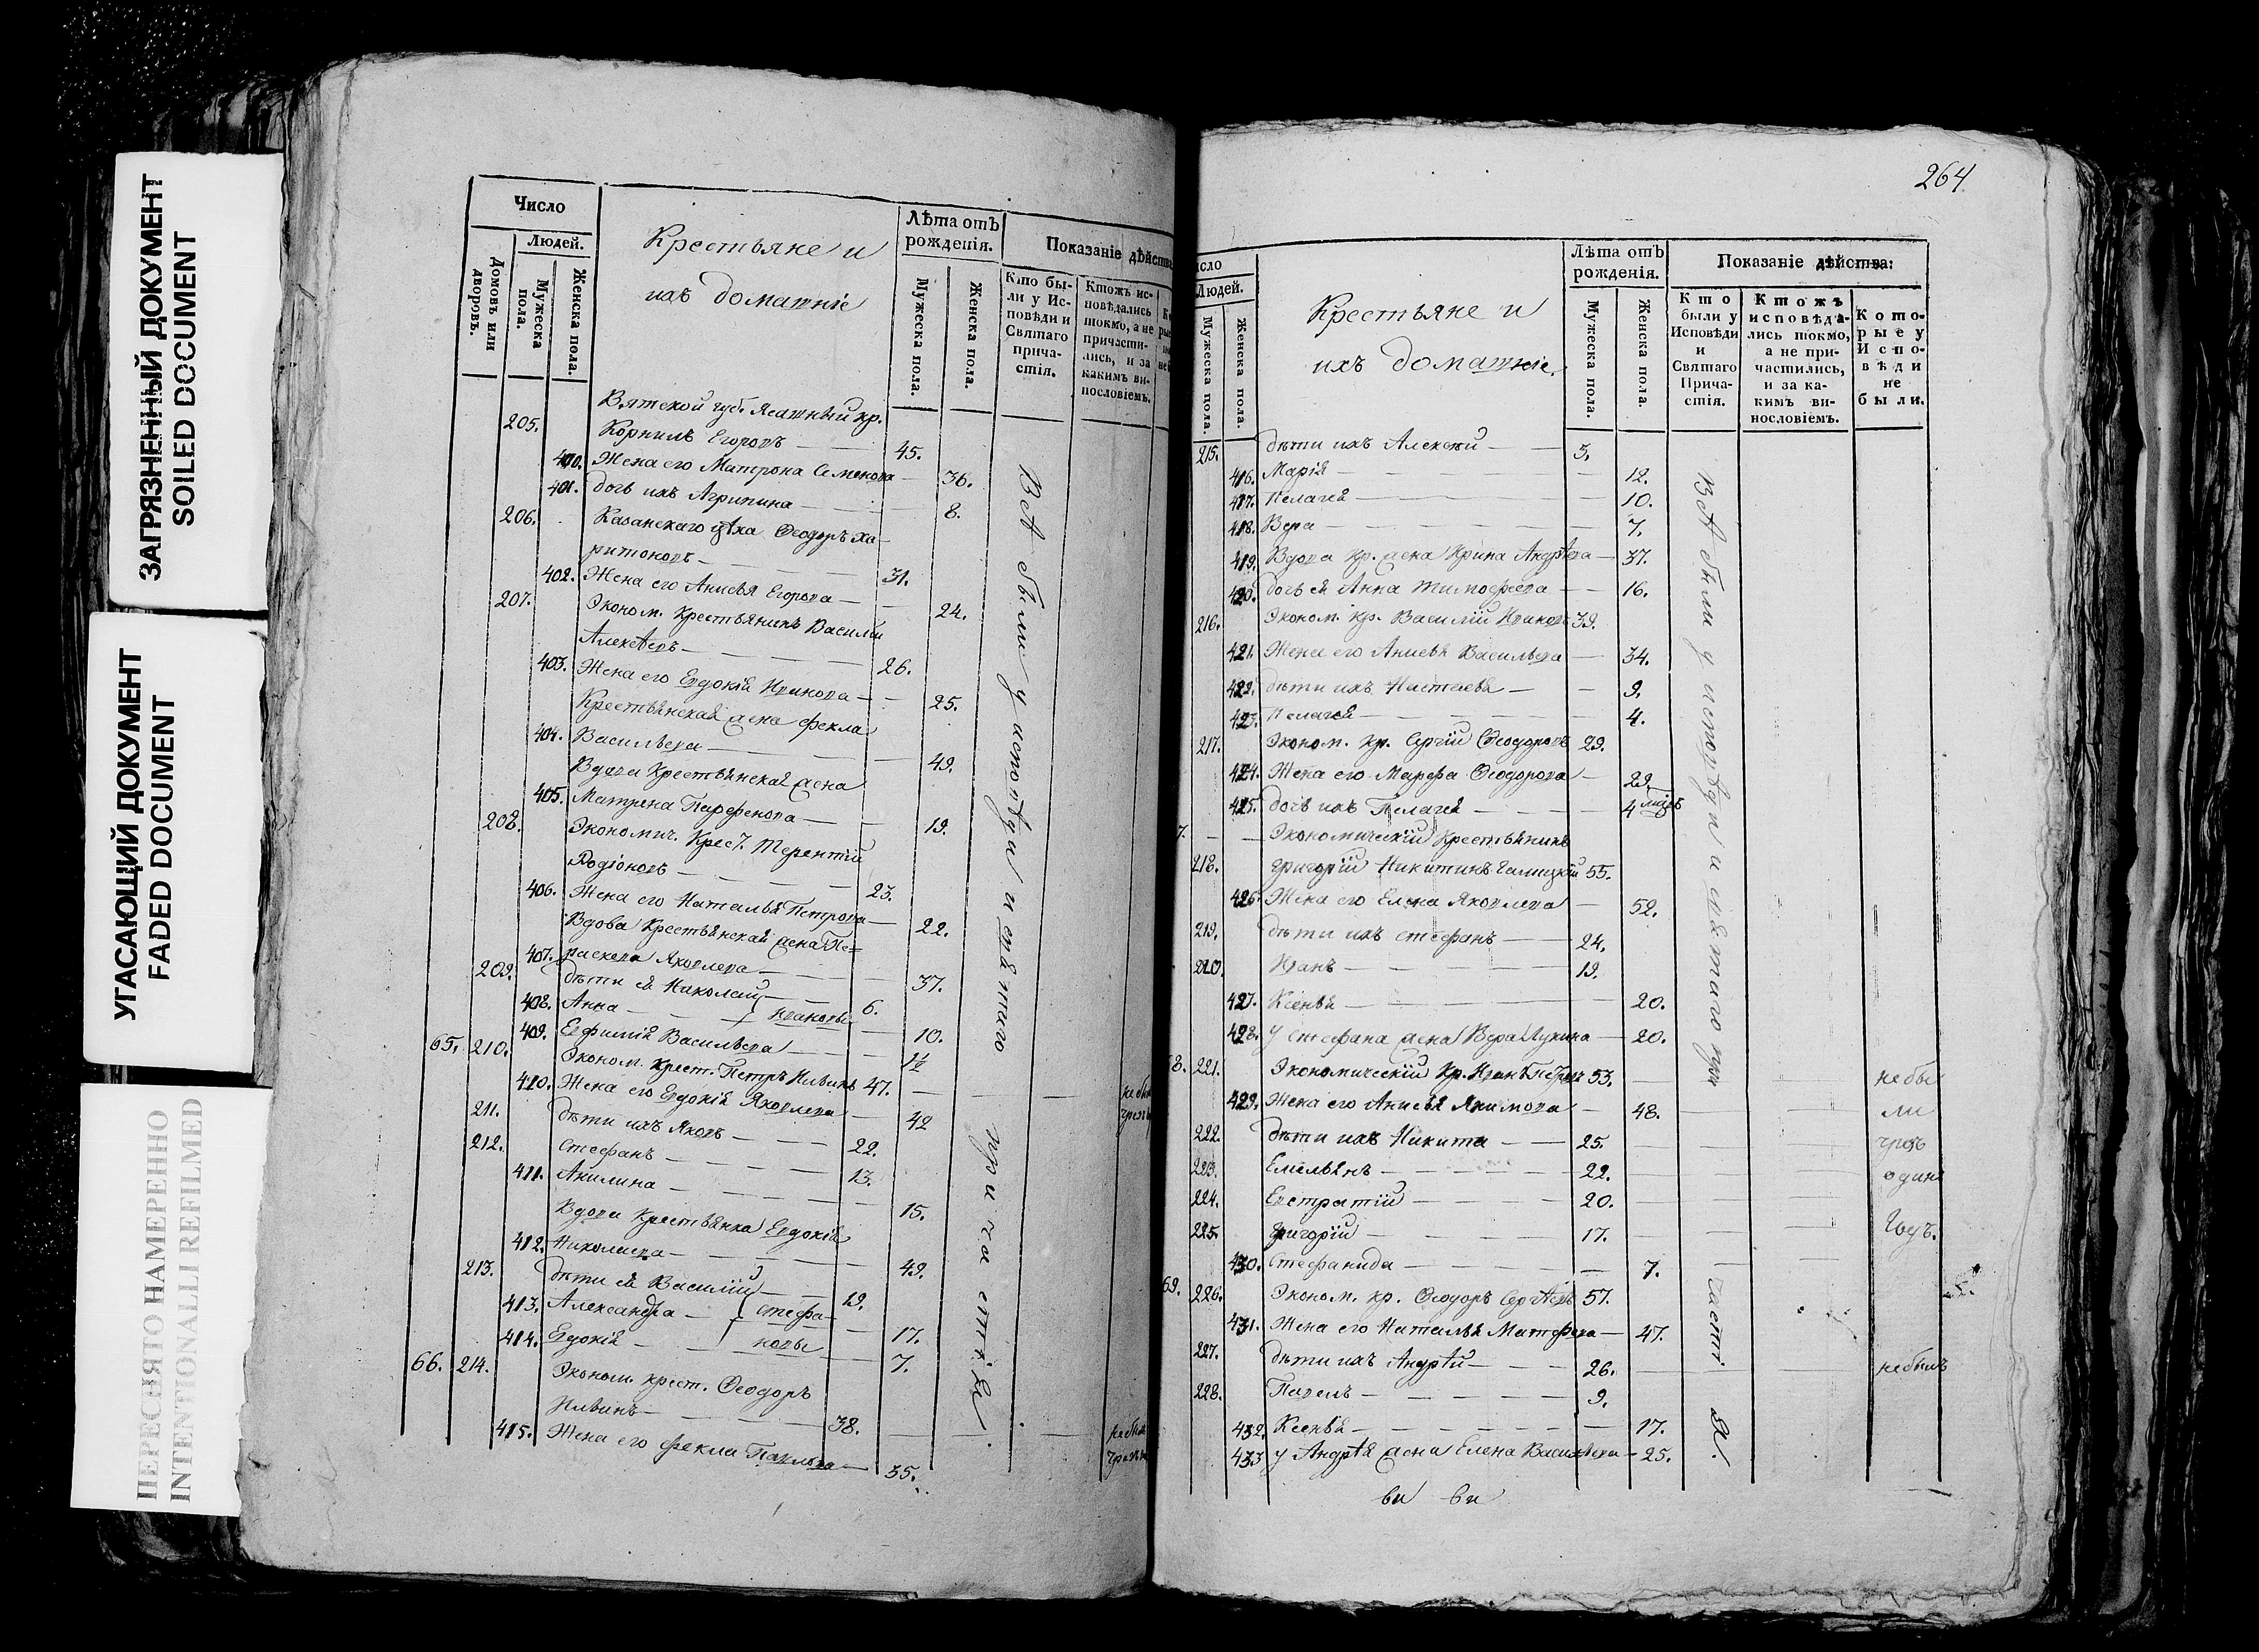 ЗАГРЯЗНЕННЫЙ ДОКУМЕНТ
SOILED DOCUMENT
УГАСАЮЩИЙ ДОКУМЕНТ
FADED DOCUMENT
ПЕРЕСНЯТО НАМЕРЕННО
INTENTIONALLI REFILMED
Число
Людей.
Домовъ или дворовъ.
Мужеска пола.
Женска пола.
Крестьяне и
ихъ домашніе
Лѣта отъ рожденія.
Мужеска пола.
Женска пола.
Показаніе дѣйства
Кто бы-
ли у Ис-
повѣди и
Святаго
прича-
стія.
Ктожъ ис-
повѣдались
токмо, а не
причасти-
лись, и за
какимъ ви-
нословіемъ.
Вятской губ. Ясашный кр.
205. Корнилъ Егоровъ 45.
400. Жена его Матрона Семенова 36.
401. дочь ихъ Агрипина 8.
206. Казанскаго цѣха Ѳеодоръ Ха-
ритоновъ 31.
402. Жена его Анисья Егорова 24.
207. Эконом. Крестьянинъ Василій
Алексѣевъ 26.
403. Жена его Евдокія Иванова 25.
Крестьянская жена Фекла
404. Васильева 49.
Вдова Крестьянская жена
405. Матрена Парфенова 19.
208. Экономич. Крест. Терентій
Родіоновъ 23.
406. Жена его Наталья Петрова 22.
Вдова Крестьянская жена Па-
407. раскева Яковлева 37.
209. дѣти ея Николай 6.
408. Анна Ивановы 10.
409. Евфимія Васильева 1½
65. 210. Эконом. крест. Петръ Ильинъ 47.
410. Жена его Евдокія Яковлева 42
211. дѣти ихъ Яковъ 22.
212. Стефанъ 13.
411. Акилина 15.
Вдова Крестьянка Евдокія
412. Николаева 49.
213. дѣти ея Василій 19.
413. Александра Стефа- 17.
414. Евдокія новы 7.
66. 214. Эконом. крест. Ѳеодоръ
Ильинъ 38.
415. Жена его Фекла Павлова 35.
Всѣ были у исповѣди и святаго причастія.
264
Людей.
Мужеска пола.
Женска пола.
Крестьяне и
ихъ домашніе.
Лѣта отъ рожденія.
Мужеска пола.
Женска пола.
Показаніе дѣйства:
Кто
были у
Исповѣди
и
Святаго
Прича-
стія.
Ктожъ
исповѣда-
лись токмо,
а не при-
частились,
и за ка-
кимъ ви-
нословіемъ.
Кото-
рые у
Испо-
вѣди
не
были.
215. дѣти ихъ Алексѣй 3.
416. Марія 12.
417. Пелагея 10.
418. Вера 7.
419. Вдова кр. жена Ирина Андрѣева 37.
420. дочь ея Анна Тимофеева 16.
216. Эконом. кр. Василій Ивановъ 39.
421. Жена его Анисья Васильева 34.
422. дѣти ихъ Настасья 9.
423. Пелагея 4.
217. Эконом. кр. Сергій Ѳеодоровъ 29.
424. Жена его Марфа Ѳеодорова 29.
425. дочь ихъ Пелагея 4
7. Экономическій Крестьянинъ
218. Григорій Никитинъ Галицкій 55.
426. Жена его Елена Яковлева 52.
219. дѣти ихъ Стефанъ 24.
220. Иванъ 19.
427. Ксенья 20.
428. у Стефана жена Вера Лукина 20.
8. 221. Экономическій Кр. Иванъ Петровъ 53. не бы
429. Жена его Анисья Якимова 48. ли
222. дѣти ихъ Никита 25. чрезъ
223. Емельянъ 22. одинъ
224. Евстратій 20.
225. Григорій 17. Годъ.
430. Стефанида 7.
69. 226. Эконом. кр. Ѳеодоръ Сергѣевъ 57.
431. Жена его Наталья Матфеева 47.
227. дѣти ихъ Андрѣй 26. не былъ
228. Павелъ 9.
432. Ксенья 17.
433 у Андрѣя жена Елена Васильева 25.
Всѣ были у исповѣди и святаго причастія.